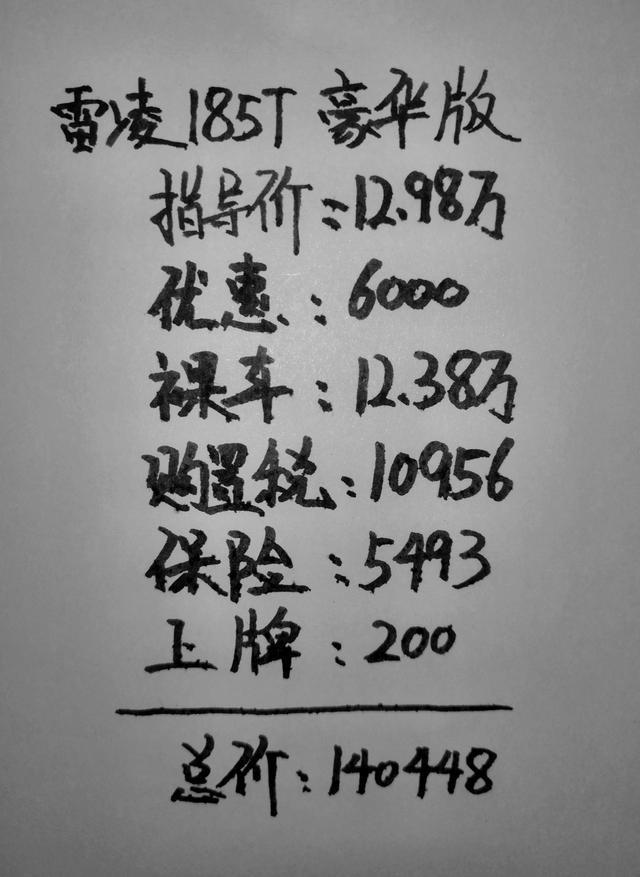 雷凌185T 豪华版
指导价：12.98万
优惠：6000
裸车：12.38万
购置税：10956
保险：5493
上牌：200
总价：140448